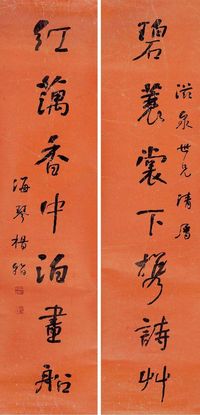 滋泉世兄清屬
碧蓑裳下携詩艸
紅藕香中泊畫船
海琴楊翰